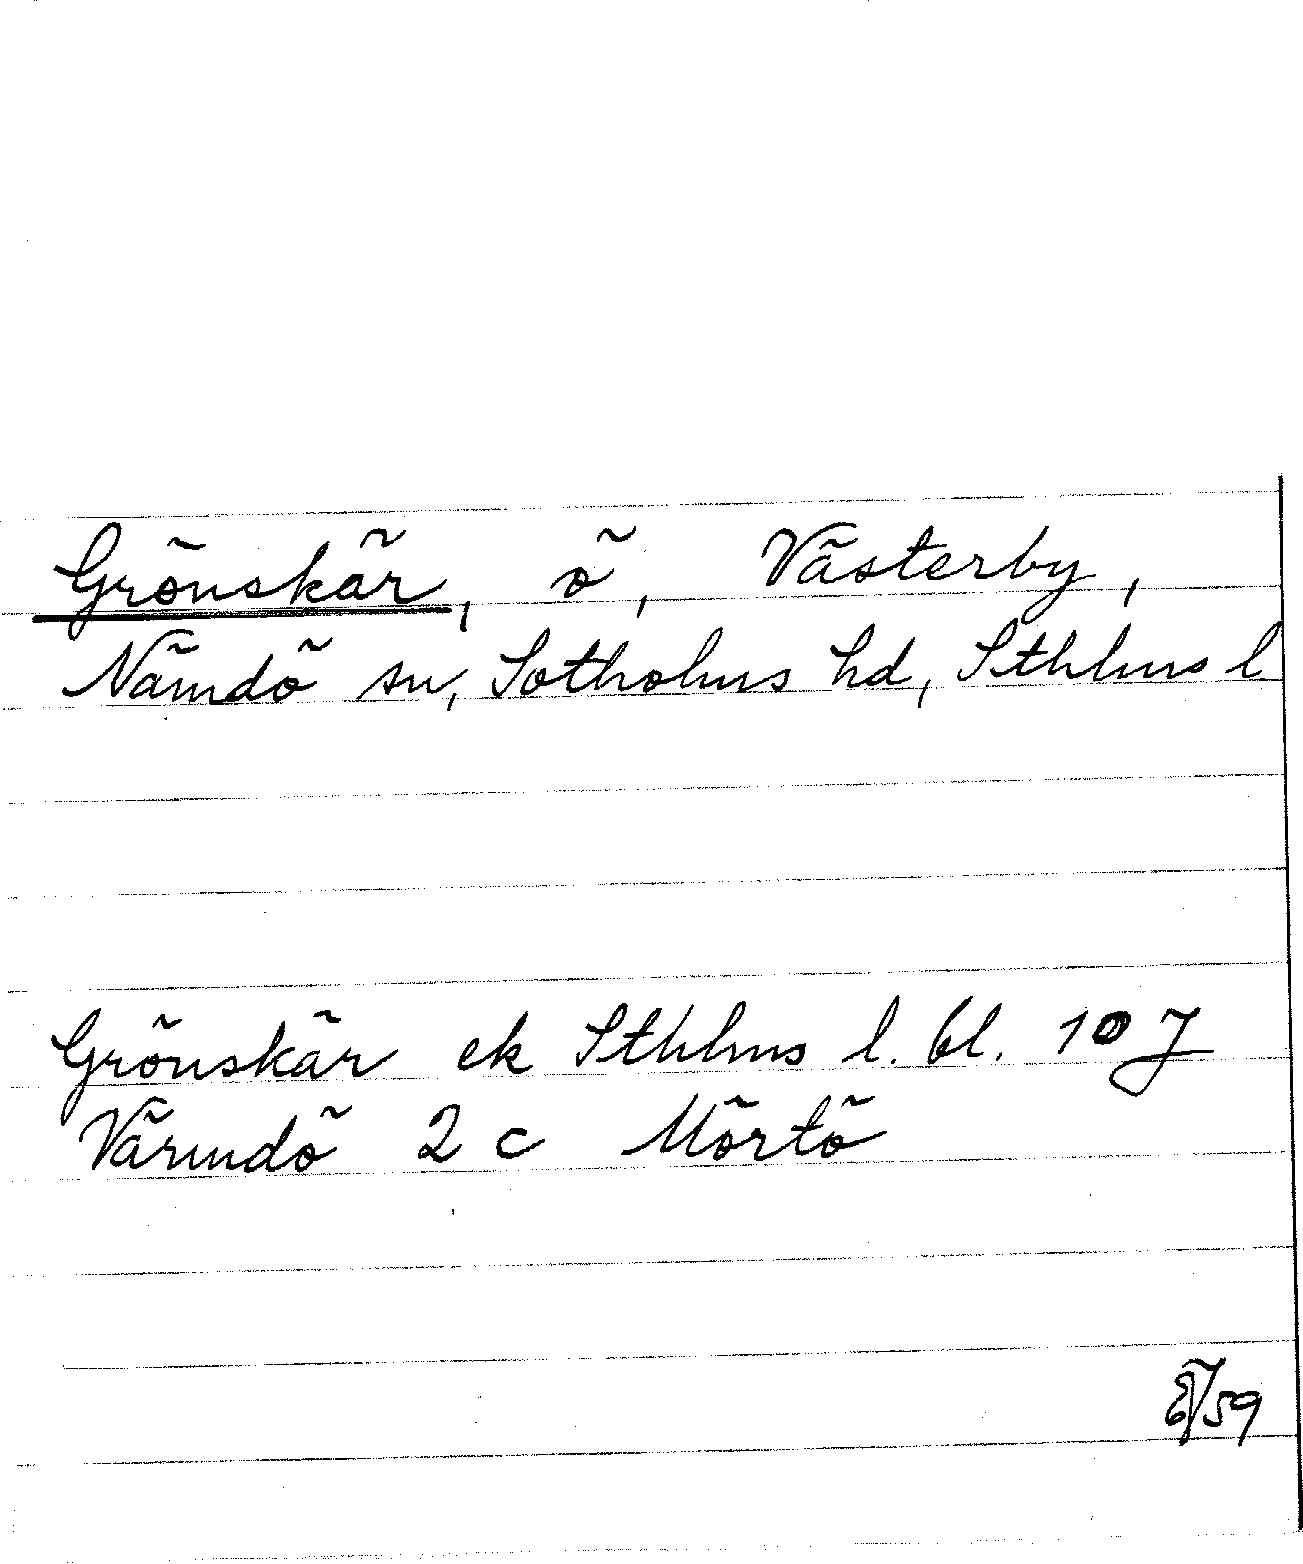 Grönskär, ö, Västerby,
Nämdö sn, Sotholms hd, Sthlms l
Grönskär ek Sthlms l. bl. 107
Värmdö 2 c Mörtö
/59